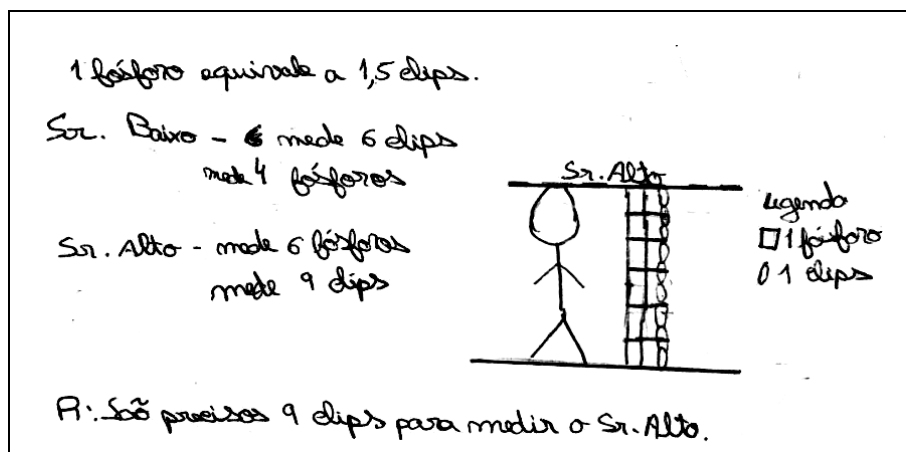 1 fósforo equivale a 1,5 clips.
Sr. Baixo - mede 6 clips
mede 4 fósforos
Sr. Alto - mede 6 fósforos
mede 9 clips
Sr. Alto
Legenda
1 fósforo
1 clips
R: São precisos 9 clips para medir o Sr. Alto.